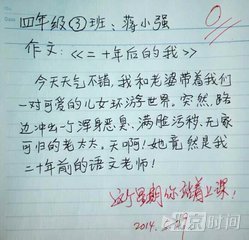 四年级③班:蒋小强
0
作文:《二十年后的我》
今天天气不错,我和老婆带着我们
一对可爱的儿女环游世界。突然,路
边冲出一个浑身恶臭、满脸污秽、无家
可归的老太太。天啊!她竟然是我
二十年前的语文老师!
这个星期你站着上课!
2014.
时间